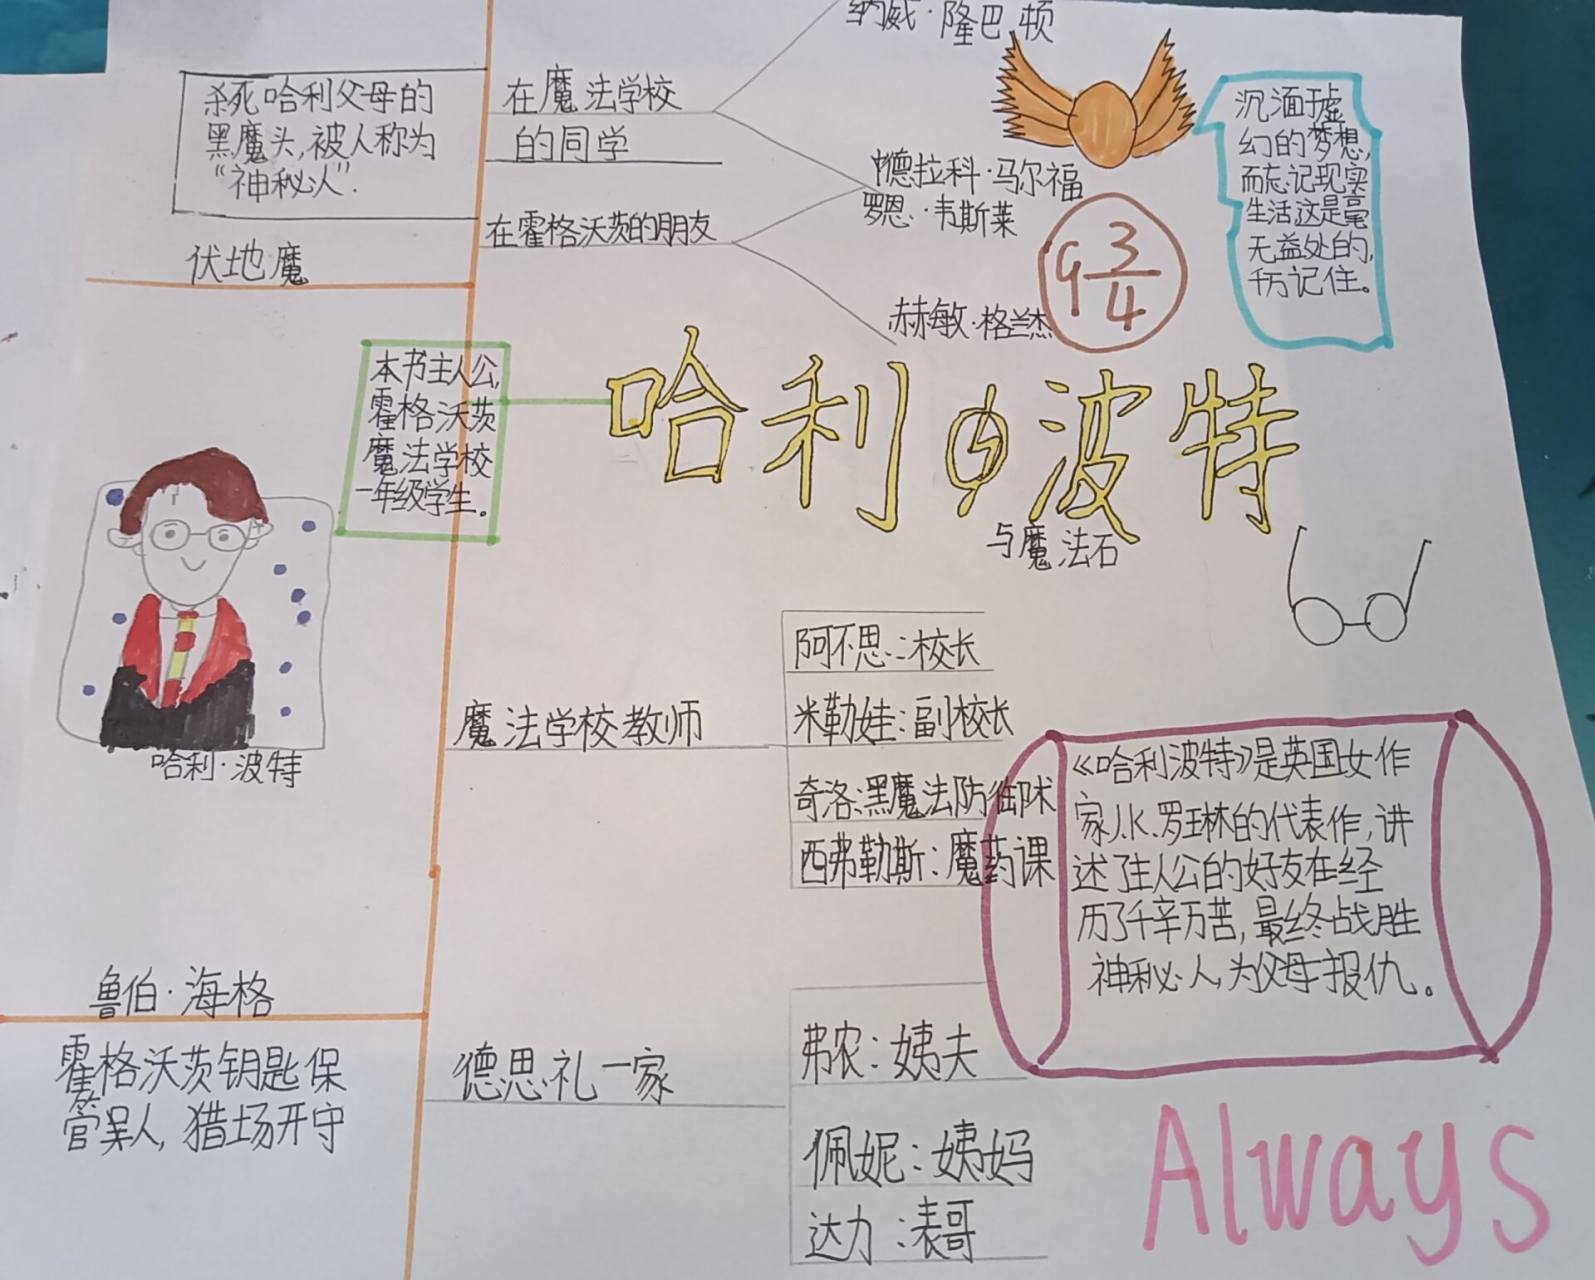 纳威·隆巴顿
杀死哈利父母的
黑魔头,被人称为
“神秘人”.
伏地魔
在魔法学校
的同学
德拉科·马尔福
在霍格沃茨的朋友
罗恩·韦斯莱
赫敏·格兰杰
9 3/4
沉湎于虚
幻的梦想,
而忘记现实
生活这是毫
无益处的,
千万记住。
本书主人公,
霍格沃茨
魔法学校
一年级学生。
哈利波特
与魔法石
哈利·波特
魔法学校教师
阿不思:校长
米勒娃:副校长
奇洛:黑魔法防御术
西弗勒斯:魔药课
《哈利波特》是英国女作
家J.K.罗琳的代表作,讲
述了主人公的好友在经
历了千辛万苦,最终战胜
神秘人,为父母报仇。
鲁伯·海格
霍格沃茨钥匙保
管呆人,猎场开守
德思礼一家
弗农:姨夫
佩妮:姨妈
达力:表哥
Always